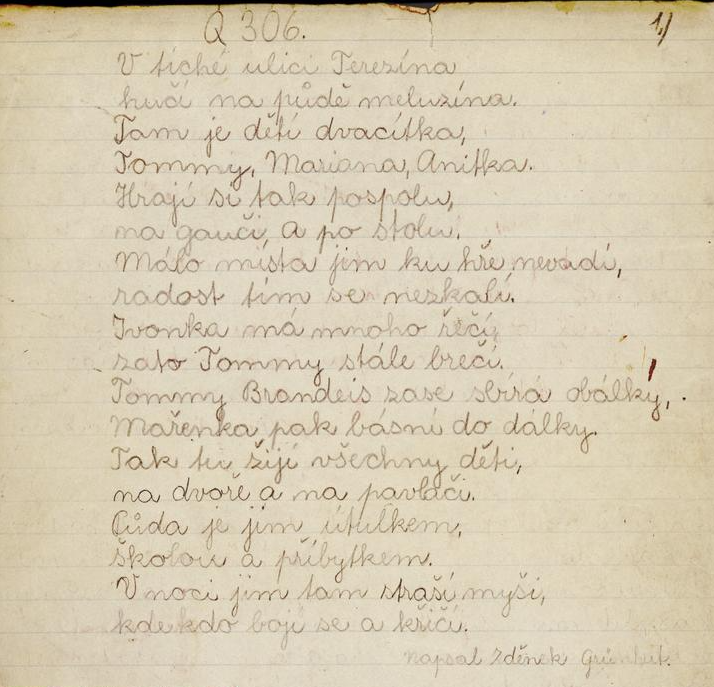 Q 306.
1)
V tiché ulici Terezína
hučí na půdě meluzína.
Tam je dětí dvacítka,
Tommy, Mariana, Anitka.
Hrají si tak pospolu,
na gauči, a po stolu.
Málo místa jim ku hře nevadí,
radost tím se nezkalí.
Ivonka má mnoho řečí,
zato Tommy stále brečí.
Tommy Brandeis zase sbírá obálky,
Mařenka pak básní do dálky.
Tak tu žijí všechny děti,
na dvoře a na pavlači.
Půda je jim útulkem,
školou a příbytkem.
V noci jim tam straší myši,
kdekdo bojí se a křičí.
napsal Zdeněk